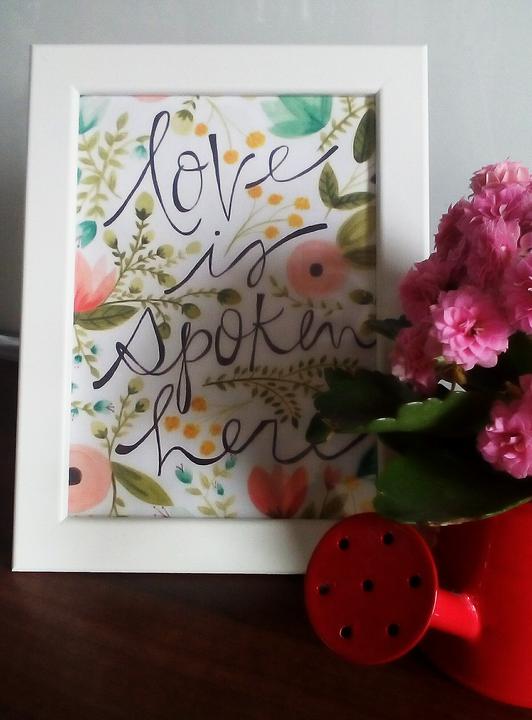 love
is
spoken
here